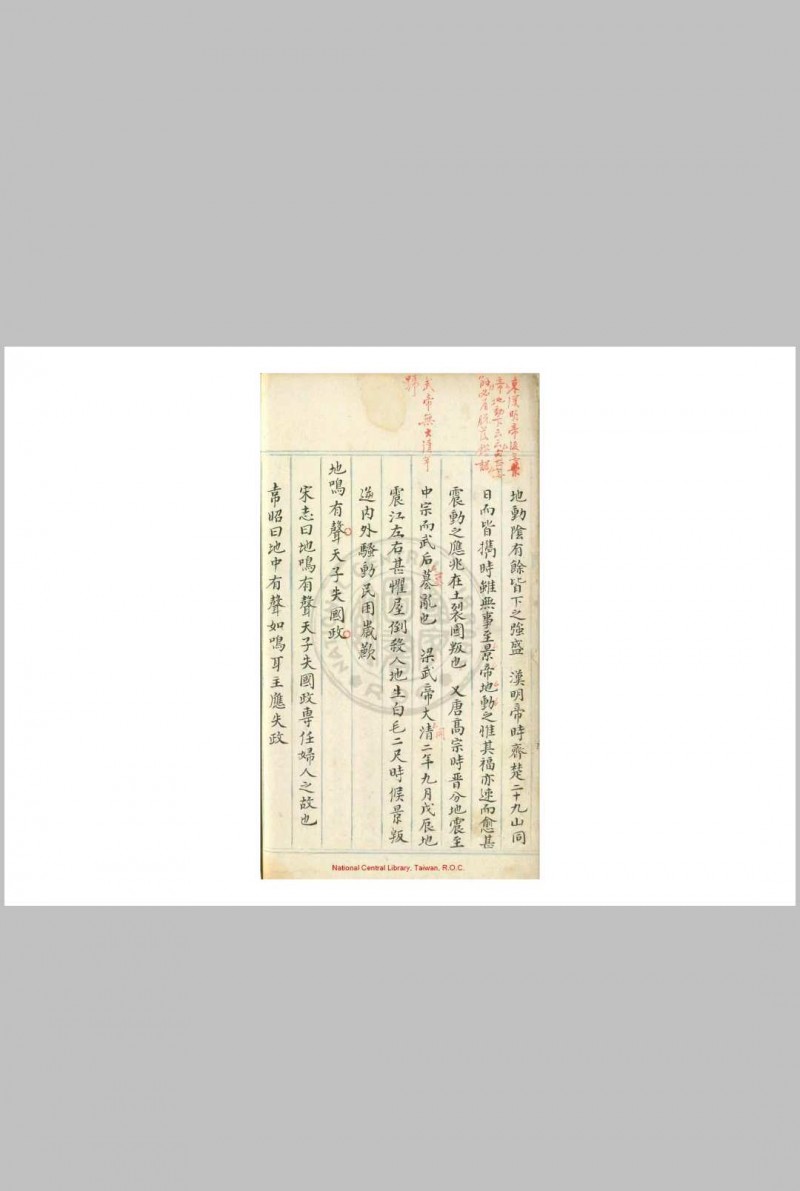 地動隂有餘皆下之強盛　漢明帝時齊楚二十九山同
日而皆攜時雖無事至景帝地動之雖其福亦速而愈甚
震動之應兆在土裂國叛也　又唐高宗時晋分地震至
中宗而武后篡亂也　梁武帝大清二年九月戊辰地
震江左右甚懼屋倒殺人地生白毛二尺時候景叛
逆内外騷動民困歲歉
地鳴有聲天子失國政
宋志曰地鳴有聲天子失國政專任婦人之故也
韋昭曰地中有聲如鳴耳主應失政
東漢明帝後
帝地動下云云
武帝無大清年
號
National Central Library, Taiwan, R.O.C.